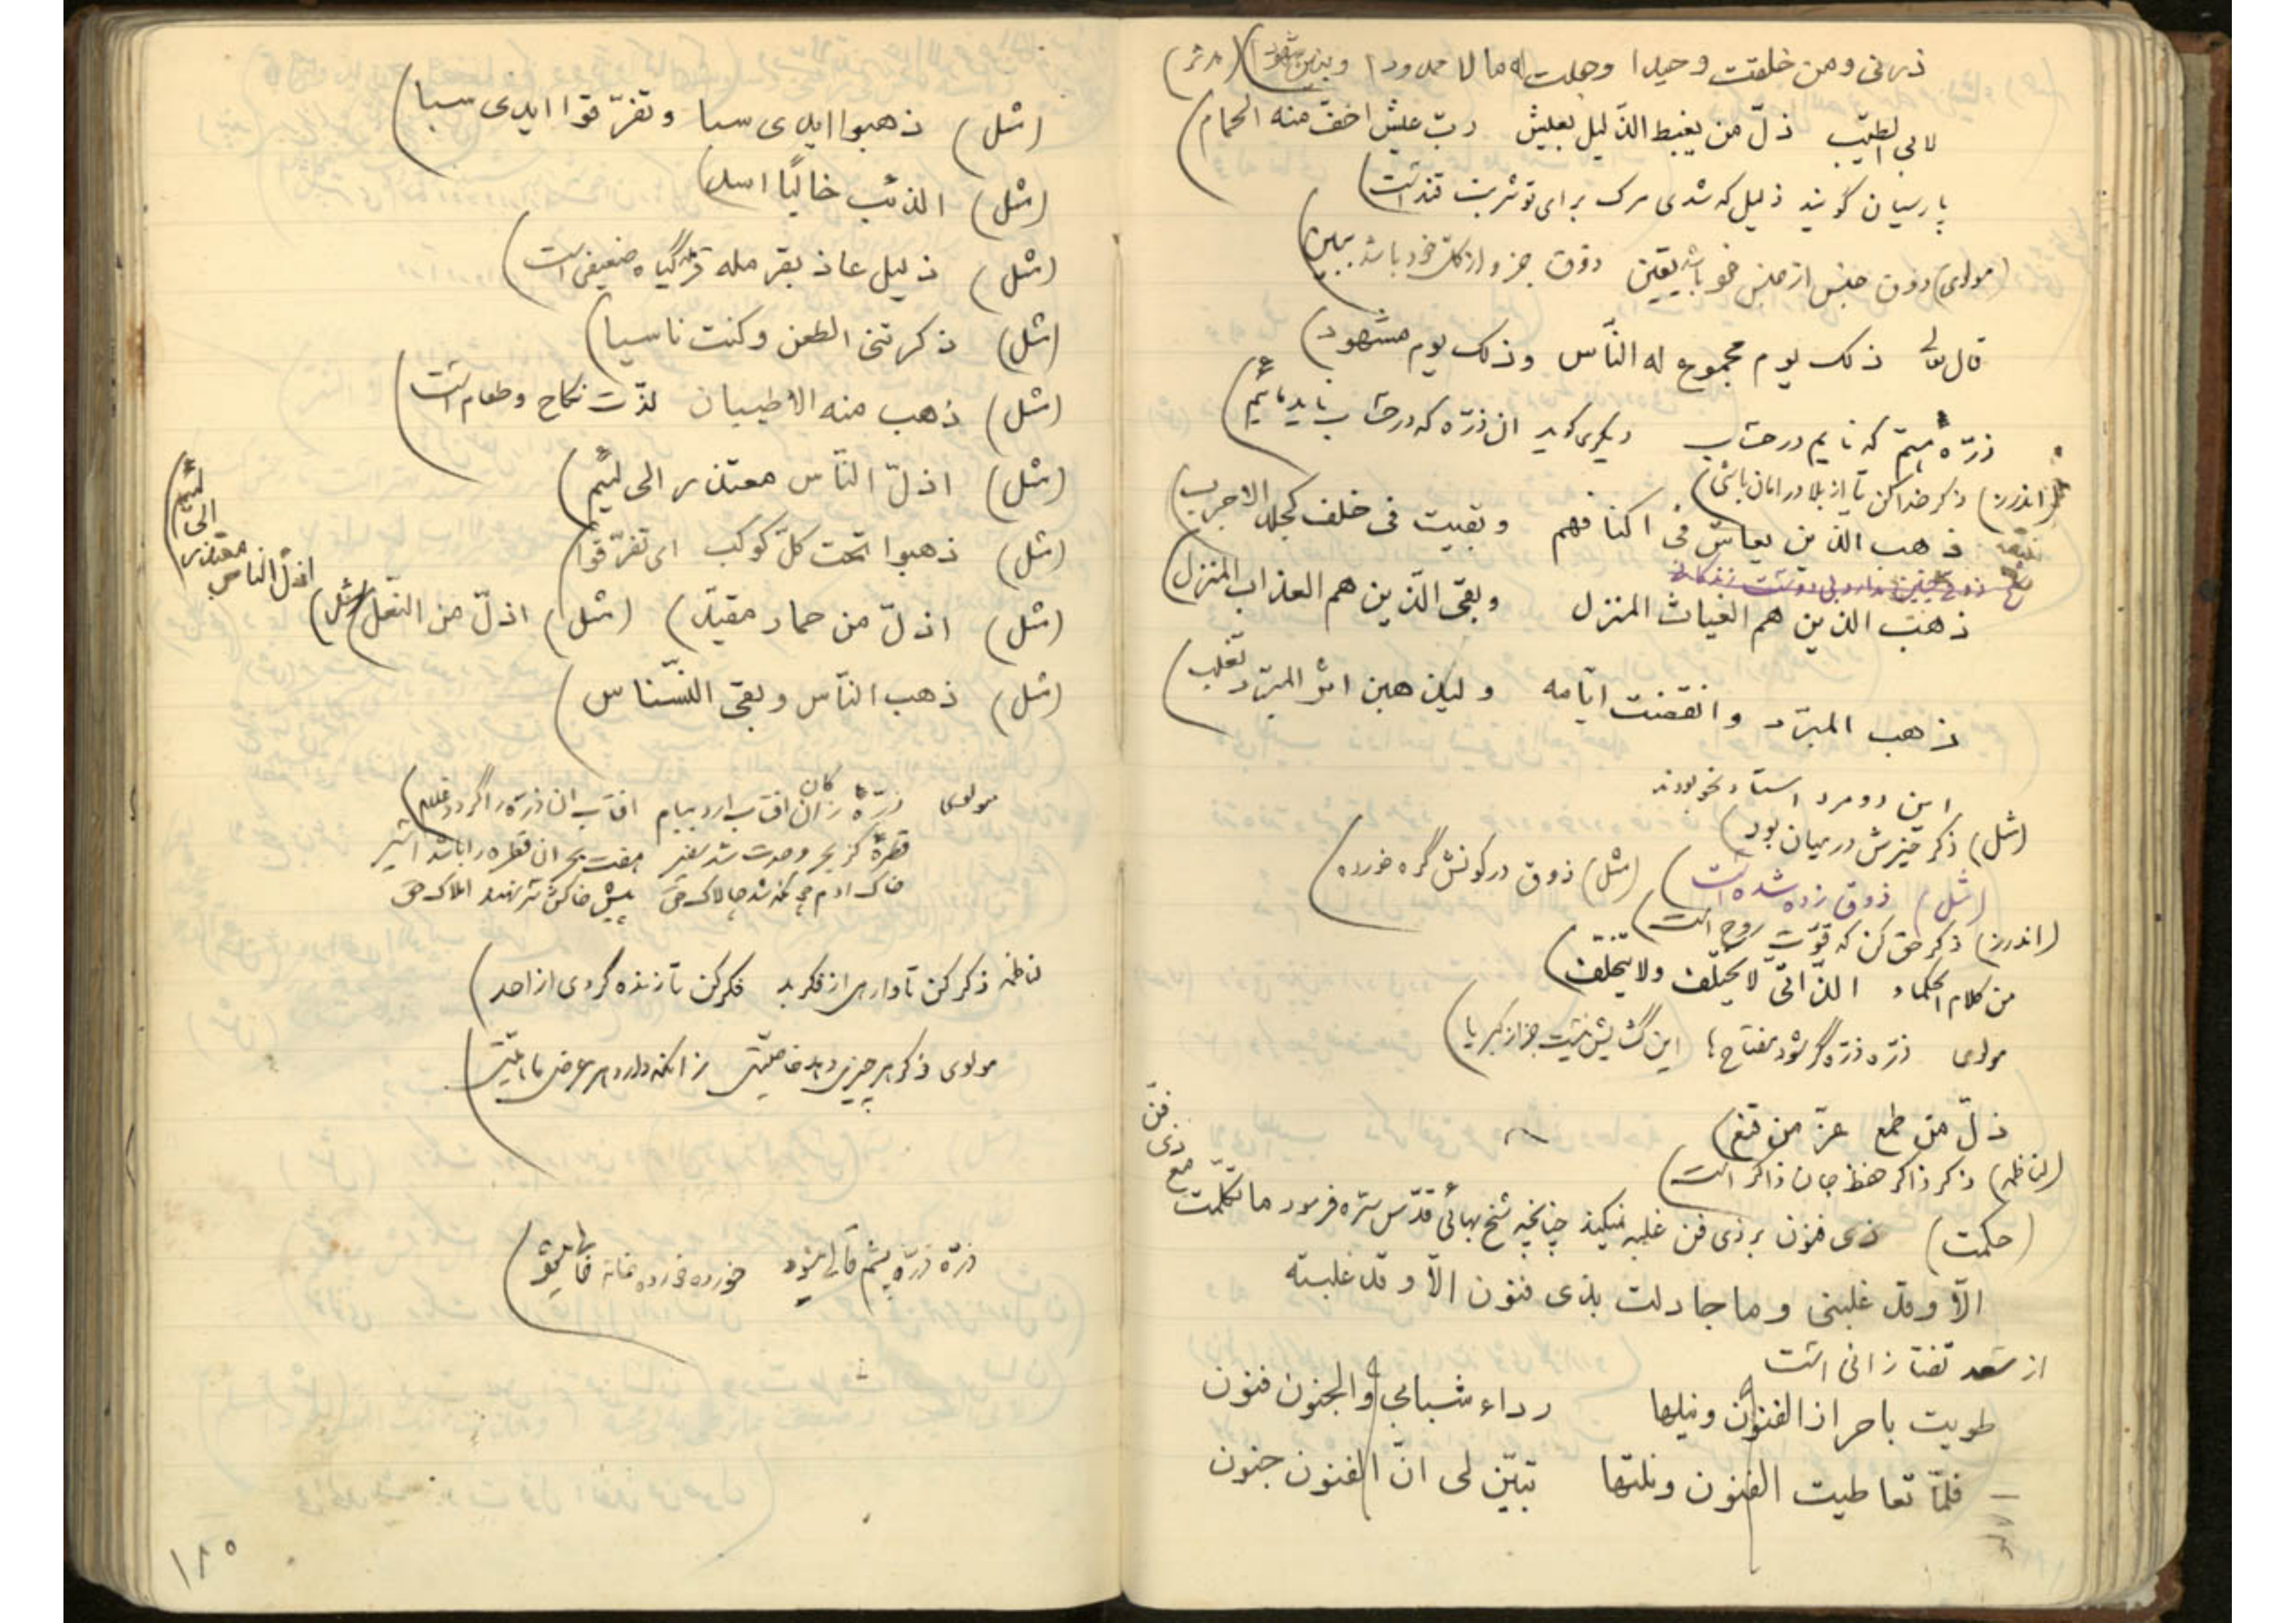 ذرنی ومن خلقت وحیدا وجعلت له مالا ممدودا وبنین شهودا (مدثر)
لابی الطیّب ذلّ من یغبط الذّلیل بعیش ربّ عیش اخفّ منه الحمام
پارسیان گویند ذلیل که شدی مرک برای تو شربت قند است
(مولوی) ذوق جنس از جنس خود باشد یقین ذوق جزو از کلّ خود باشد ببین
قال تعالی ذلک یوم مجموع له النّاس وذلک یوم مشهود
ذرّه ئیم که نایم در حساب دیگری گوید ان ذرّه که در حساب ناید مائیم
(اندرز) ذکر خدا کن تا از بلا در امان باشی
ذهب الذین یعاش فی اکنافهم وبقیت فی خلف کجلد الاجرب
ذهب الذین هم الغیاث المنزل وبقی الّذین هم العذاب المنزل
ذهب المبرّد وانقضت ایّامه ولیذهبن اثر المبرّد ثعلب
این دو مرد استاد نحو بودند
(مثل) ذکر خیرش در میان بود
(مثل) ذوق زده شده است (مثل) ذوق در کونش گره خورده
(اندرز) ذکر حق کن که قوّت روح است
من کلام الحکماء الذّاتیّ لا یختلف ولا یتخلّف
مولوی ذرّه ذرّه گر شود مفتاح ها این گشایش نیست جز از کبریا
ذلّ من طمع عزّ من قنع
(لناظمه) ذکر ذاکر حفظ جان ذاکر است
(حکمت) ذی فنون بر ذی فن غلبه میکند چنانچه شیخ بهائی قدّس سرّه فرمود ما تکلّمت مع ذی فنّ
الّا وقد غلبنی وما جادلت بذی فنون الّا وقد غلبته
از سعد تفتازانی است
طویت باحراز الفنون ونیلها رداء شبابی والجنون فنون
فلمّا تعاطیت الفنون ونلتها تبیّن لی انّ الفنون جنون
(مثل) ذهبوا ایدی سبا وتفرّقوا ایدی سبا
(مثل) الذئب خالیًا اسد
(مثل) ذلیل عاذ بقرمله قرمله گیاه ضعیفی است
(مثل) ذکرتنی الطعن وکنت ناسیا
(مثل) ذهب منه الاطیبان لذّت نکاح وطعام است
(مثل) اذلّ النّاس معتذر الی لئیم
(مثل) ذهبوا تحت کلّ کوکب ای تفرّقوا
(مثل) اذلّ من حمار مقیّد (مثل) اذلّ من النّعل (مثل) اذلّ الناس معتذر الی لئیم
(مثل) ذهب النّاس وبقی النّسناس
مولوی ذرّه کان زان افتاب ارد پیام افتاب ان ذرّه را گردد غلام
قطرۀ کز بحر وحدت شد سفیر هفت بحر ان قطره را باشد اسیر
خاک ادم چونکه شد چالاک حق پیش خاکش سر نهند املاک حق
لناظمه ذکر کن تا وارهی از فکر بد فکر کن تا زنده گردی از احد
مولوی ذکر هر چیزی دهد خاصیّتی زانکه دارد هر عرض ماهیّتی
ذرّه ذرّه پشم قالی میشود خورده خورده خانه خالی میشود
۱۸۵